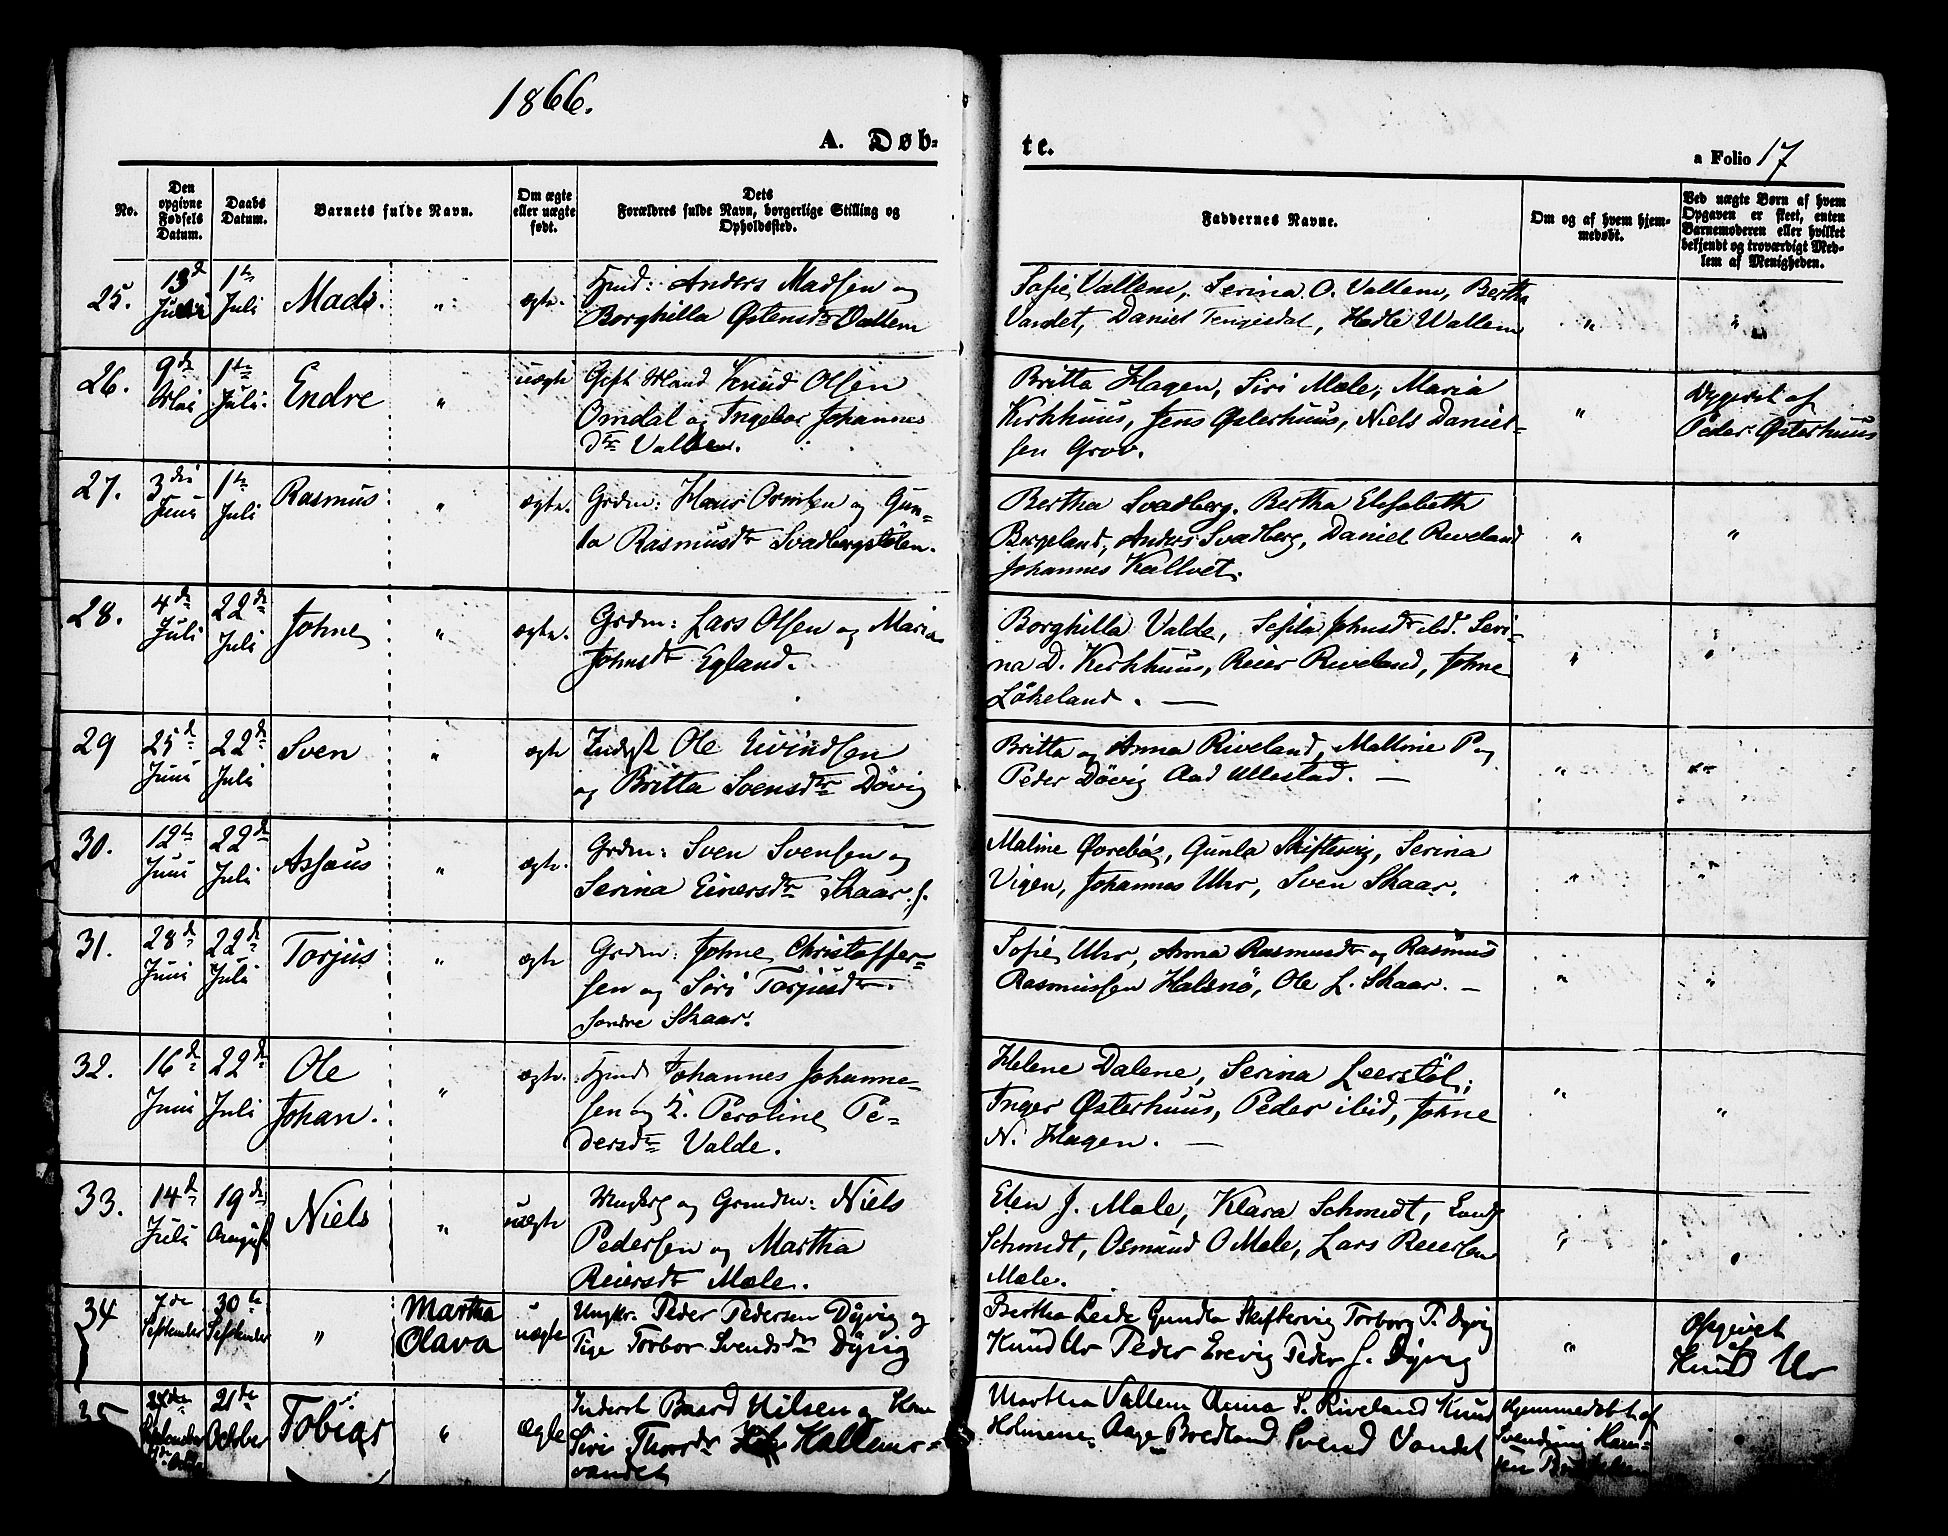 1866.
A. Døb-
te.
a Folio 17
No.
Den
opgivne
Fødsels
Datum.
Daabs
Datum.
Barnets fulde Navn.
Om ægte
eller uægte
født.
Dets
Forældres fulde Navn, borgerlige Stilling og
Opholdssted.
Faddernes Navne.
Om og af hvem hjem-
medøbt.
Ved uægte Børn af hvem
Opgaven er skeet, enten
Barnemoderen eller hvilket
bekjendt og troværdigt Med-
lem af Menigheden.
25.
13d
1te
Juli
Mads.
ægte.
Hmd: Anders Madsen og
Borghilla Østensdtr Vallem
Sofie Vallem, Serina O. Vallem, Bertha
Vandet, Daniel Tengesdal, Hadle Wallem
26.
9de
Mai
1te
Juli.
Endre
uægte
Gift Mand Knud Olsen
Omdal og Ingebor Johannes
dtr Valden.
Britta Hagen, Siri Mæle, Maria
Kirkhuus, Jens Østerhuus, Niels Daniel-
sen Grov.
Opgivet af
Peder Østerhuus
27.
3die
Juni
1te
Juli
Rasmus
ægte.
Grdm: Hans Ormsen og Gun-
la Rasmusdtr Svadbergstølen.
Bertha Svadberg. Bertha Elisabeth
Bergeland, Anders Svadberg, Daniel Riveland
Johannes Kallvet.
28.
4de
Juli
22de
Juli
Johne
ægte.
Grdm: Lars Olsen og Maria
Johnsdtr Egland.
Borghilla Valde, Sesila Johnsdtr ibd. Seri-
na D. Kirkhuus, Reier Riveland, Johne
Løkeland. —
29
25d
Juni
22de
Juli
Sven
ægte
Inderst Ole Eivindsen
og Britta Svensdtr Døvig
Britta og Anna Riveland, Malline P og
Peder Døvig Aad Ullestad. —
30.
12te
Juni
22de
Juli
Assaus
ægte.
Grdm: Sven Svensen og
Serina Einersdtr Skaar.
Maline Øvrebøs, Gunla Skiftesvig, Serina
Vigen, Johannes Uhr, Sven Skaar.
31.
28de
Juni
22de
Juli
Torjus
ægte
Grdm: Johne Christoffer-
sen og Siri Torjusdtr.
søndre Skaar.
Sofie Uhr, Anna Rasmusdtr og Rasmus
Rasmussen Halsnø, Ole L. Skaar. —
32.
16d
Juni
22de
Juli
Ole
Johan.
ægte.
Hmd Johannes Johanne-
sen og K. Peroline Pe-
dersdtr Valde.
Helene Dalene, Serina Leerstøl,
Inger Østerhuus, Peder ibid, Johne
N. Hagen. —
33.
14de
Juli
19de
August
Niels
uægte
Grmdm: Niels
Pedersen og Martha
Reiersdtr Mæle.
Elen J. Mæle, Klara Schmidt,
Schmidt, Osmund O Mæle, Lars Reiersen
Mæle.
34
7de
September
30te
September
Martha
Olava
uægte
Ungkr. Peder Pedersen Dyvig og
Pige Torbor Svendsdtr Dyvig
Bertha Leide Gundla Skiftesvig Torborg P. Dyvig
Knud Ur Peder Erevig Peder J. Dyvig
Opgivet
Knud Ur
35
27de
September
21de
October
Tobias
ægte
Inderst Baard Nilsen og Kone
Siri Thorsdtr Hallem-
vandet
Martha Vallem Anna S. Riveland Knud
Holmene Aage Bredland Svend Vandet
Hjemmedøbt af